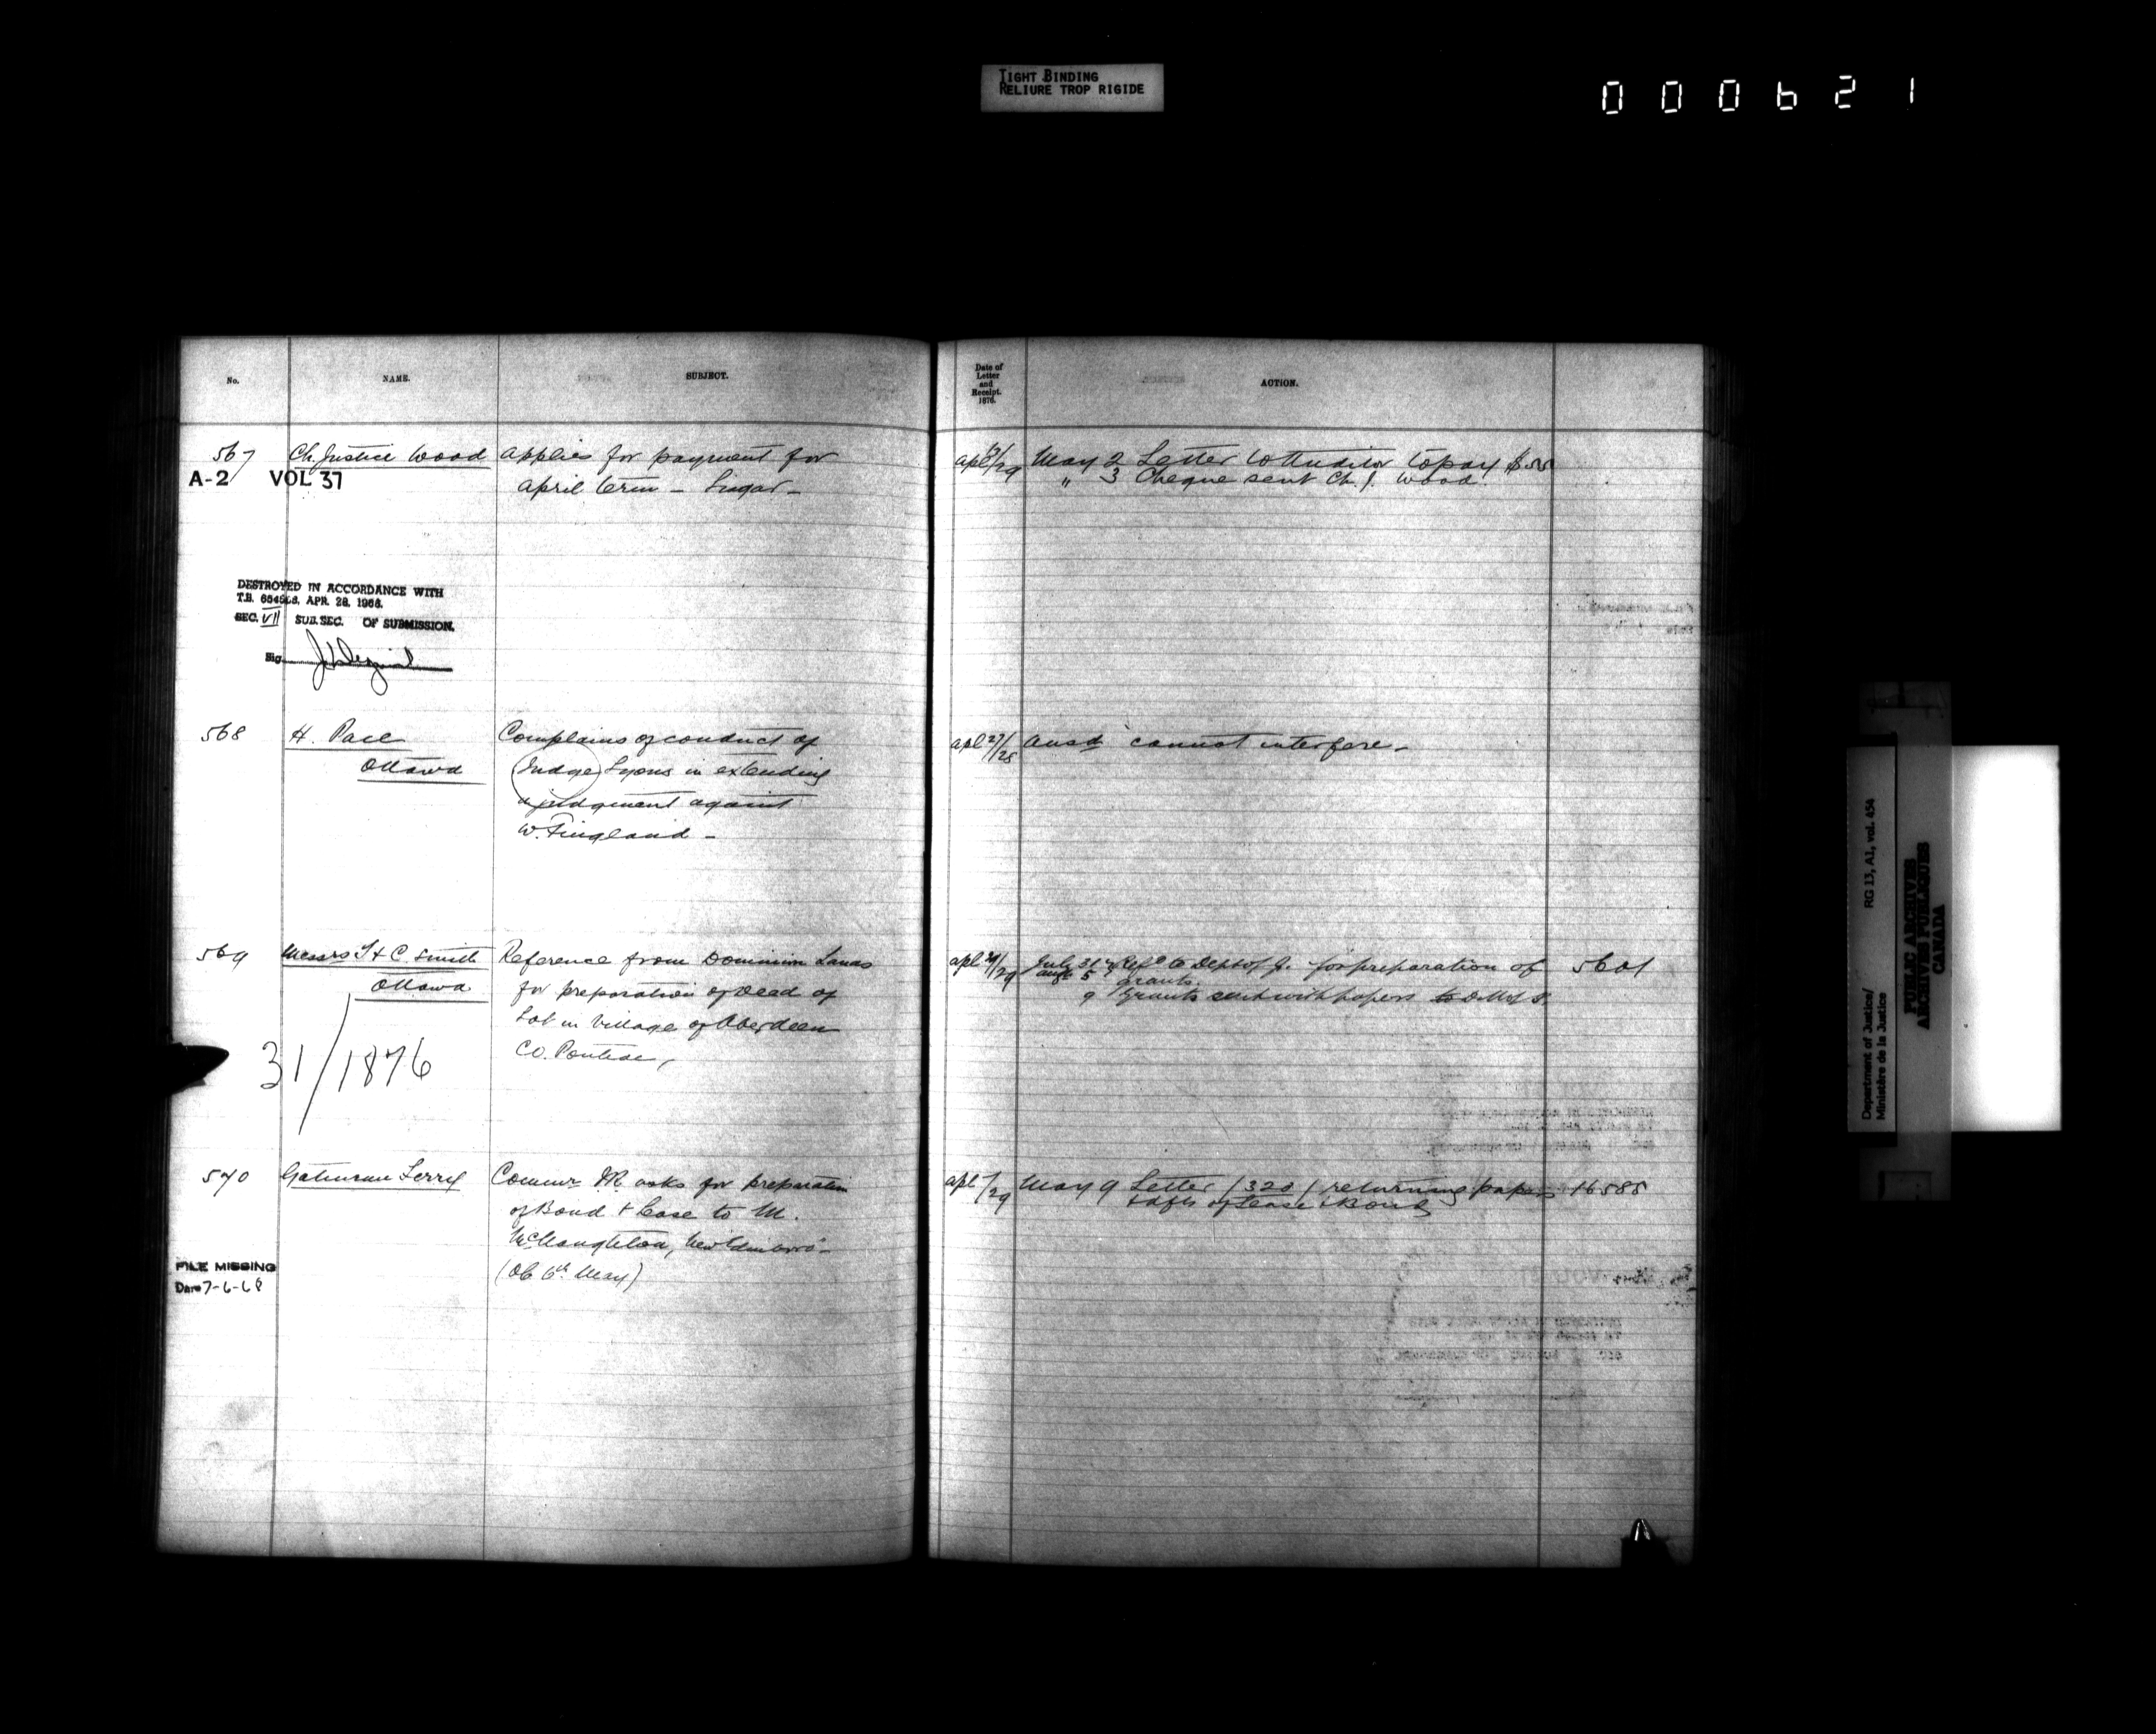 TIGHT BINDING
RELIURE TROP RIGIDE
000621
No. NAME. SUBJECT.
567 Ch. Justice Wood applies for payment for
A-2 VOL 37 april term -
DESTROYED IN ACCORDANCE WITH
T.B. APR. 28, 1966.
SEC. VII SUB. SEC. OF SUBMISSION.
Sig.
568 H. Pace Complains of conduct of
Ottawa Judge Lyons in extending
a judgement against
W. Fingland -
569 Messrs T & C. Smith Reference from Dominion Lands
Ottawa for preparation of Deed of
Lot in Village of Aberdeen
31/1876 Co. Pontiac,
570 Gatineau Ferry Commr I.R. asks for preparation
of Bond & Lease to M.
McNaughton, New Edinboro' -
FILE MISSING (OC 6th May)
Date 7-6-68
Date of
Letter
and
Receipt.
1876.
ACTION.
apl /29 May 2 Letter to Auditor to pay $
" 3 Cheque sent Ch. J. Wood.
apl 27/28 ansd cannot interfere -
apl /29 July 31 Refd to Dept of J. for preparation of 5601
Aug 5 grants.
9 Grants sent with papers to
apl /29 May 9 Letter (320) returning papers 16588
& dfts of Lease & Bond
Department of Justice/ RG 13, A1, vol. 454
Ministère de la Justice
PUBLIC ARCHIVES
ARCHIVES PUBLIQUES
CANADA